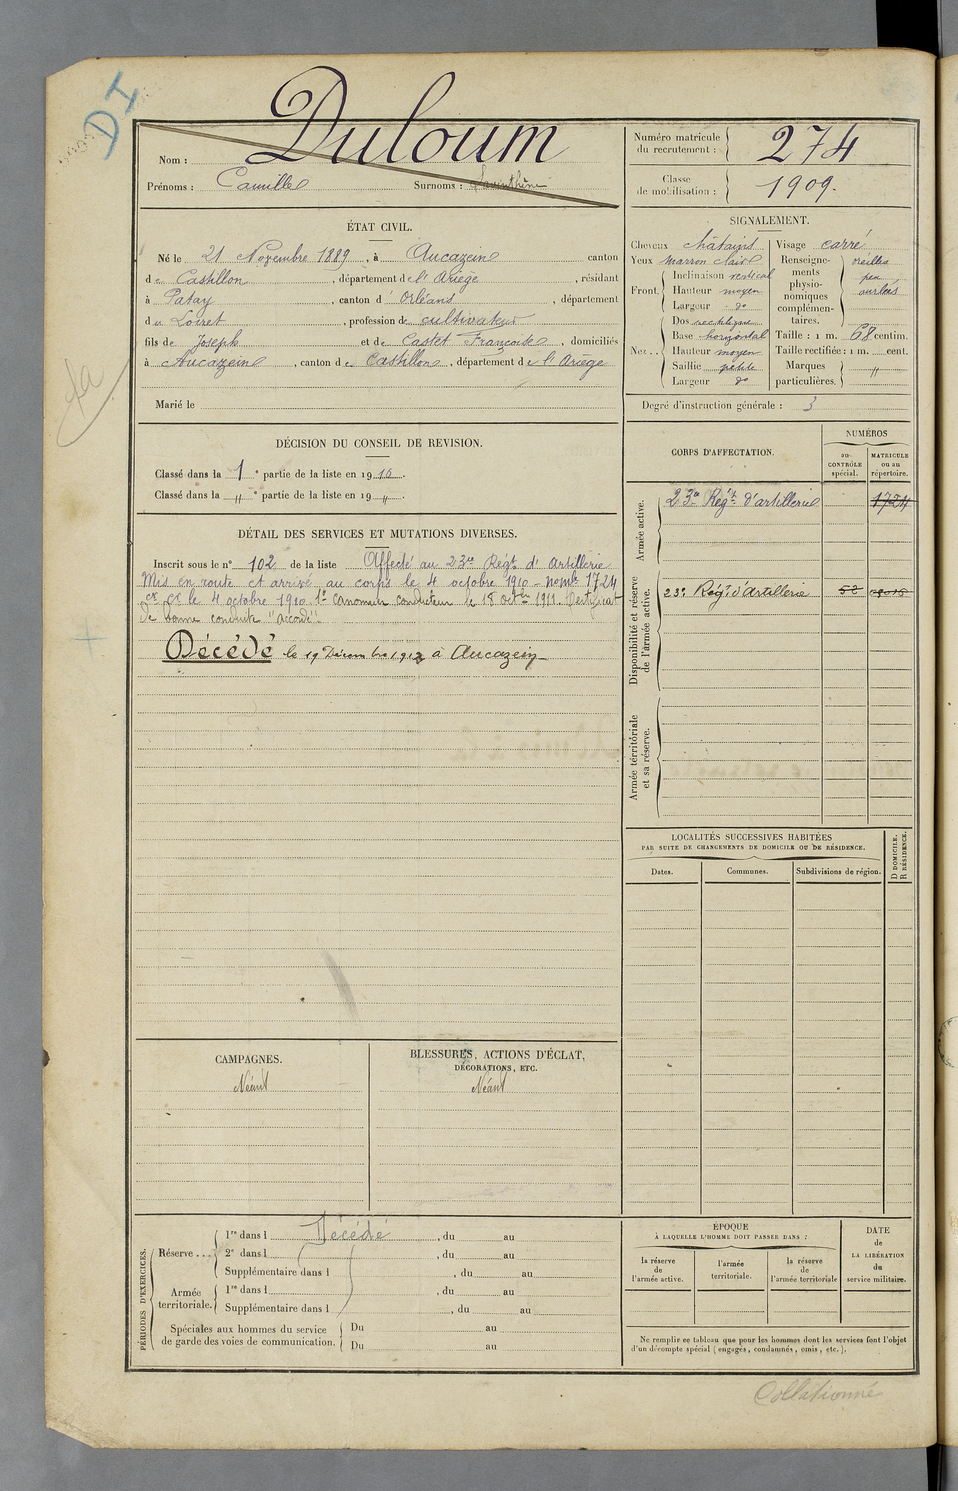 DI
Nom : Duloum
Prénoms : Camille Surnoms :
Numéro matricule du recrutement : 274
Classe de mobilisation : 1909.
ÉTAT CIVIL.
Né le 21 Novembre 1889, à Aucazein canton
de Castillon, département de l'Ariège, résidant
à Patay, canton d' Orléans, département
du Loiret, profession de cultivateur
fils de Joseph et de Castet Françoise, domiciliés
à Aucazein, canton de Castillon, département de l'Ariège
Marié le
SIGNALEMENT.
Cheveux châtains
Yeux marron clair
Front. Inclinaison vertical
Hauteur moyen
Largeur do
Nez .. Dos rectiligne
Base horizontal
Hauteur moyen
Saillie petite
Largeur do
Visage carré
Renseignements physionomiques complémentaires. oreilles
peu
ourlées
Taille : 1 m. 68 centim.
Taille rectifiée : 1 m. cent.
Marques particulières. "
Degré d'instruction générale : 3
DÉCISION DU CONSEIL DE REVISION.
Classé dans la 1e partie de la liste en 1910.
Classé dans la " e partie de la liste en 19 ".
DÉTAIL DES SERVICES ET MUTATIONS DIVERSES.
Inscrit sous le n° 102 de la liste Affecté au 23e Régt d'Artillerie
Mis en route et arrivé au corps le 4 octobre 1910 - nomb. 1724
le 4 octobre 1910 1er canonnier conducteur le 18 octbre 1911. Certificat
de bonne conduite "accordé".
Décédé le 19 Décembre 1912 à Aucazein
CORPS D'AFFECTATION.
NUMÉROS
au CONTRÔLE spécial.
MATRICULE ou au répertoire.
Armée active.
23e Régt d'artillerie 1724
Disponibilité et réserve de l'armée active.
23e Régt d'Artillerie
Armée territoriale et sa réserve.
LOCALITÉS SUCCESSIVES HABITÉES
PAR SUITE DE CHANGEMENTS DE DOMICILE OU DE RÉSIDENCE.
Dates. Communes. Subdivisions de région.
D DOMICILE. R RÉSIDENCE.
CAMPAGNES.
Néant
BLESSURES, ACTIONS D'ÉCLAT,
DÉCORATIONS, ETC.
Néant
PÉRIODES D'EXERCICES.
Réserve ... 1re dans l Décédé, du au
2e dans l , du au
Supplémentaire dans l , du au
Armée territoriale. 1re dans l , du au
Supplémentaire dans l , du au
Spéciales aux hommes du service de garde des voies de communication. Du au
Du au
ÉPOQUE
À LAQUELLE L'HOMME DOIT PASSER DANS :
la réserve de l'armée active.
l'armée territoriale.
la réserve de l'armée territoriale
DATE de LA LIBÉRATION du service militaire.
Ne remplir ce tableau que pour les hommes dont les services font l'objet
d'un décompte spécial (engagés, condamnés, omis, etc.).
Collationné